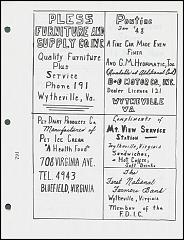 PLESS
FURNITURE AND
SUPPLY CO. INC.
Quality Furniture
Plus
Service
Phone 191
Wytheville, Va.
Pet Dairy Products Co.
Manufacturers of
Pet Ice Cream
"A Health Food"
708 VIRGINIA AVE.
TEL. 4943
BLUEFIELD, VIRGINIA
Pontiac
For '48
A FINE CAR MADE EVEN
FINER
AND G.M. HYDRAMATIC, TOO
(Available at Additional Cost)
B+D MOTOR CO. INC.
Dealer License 121
WYTHEVILLE
VA.
Compliments of
MT. VIEW SERVICE
STATION
Wytheville, Virginia
Sandwiches,
Hot Cakes,
Soft Drinks
The
First National
Farmers Bank
Wytheville, Virginia
Member of the
F.D.I.C.